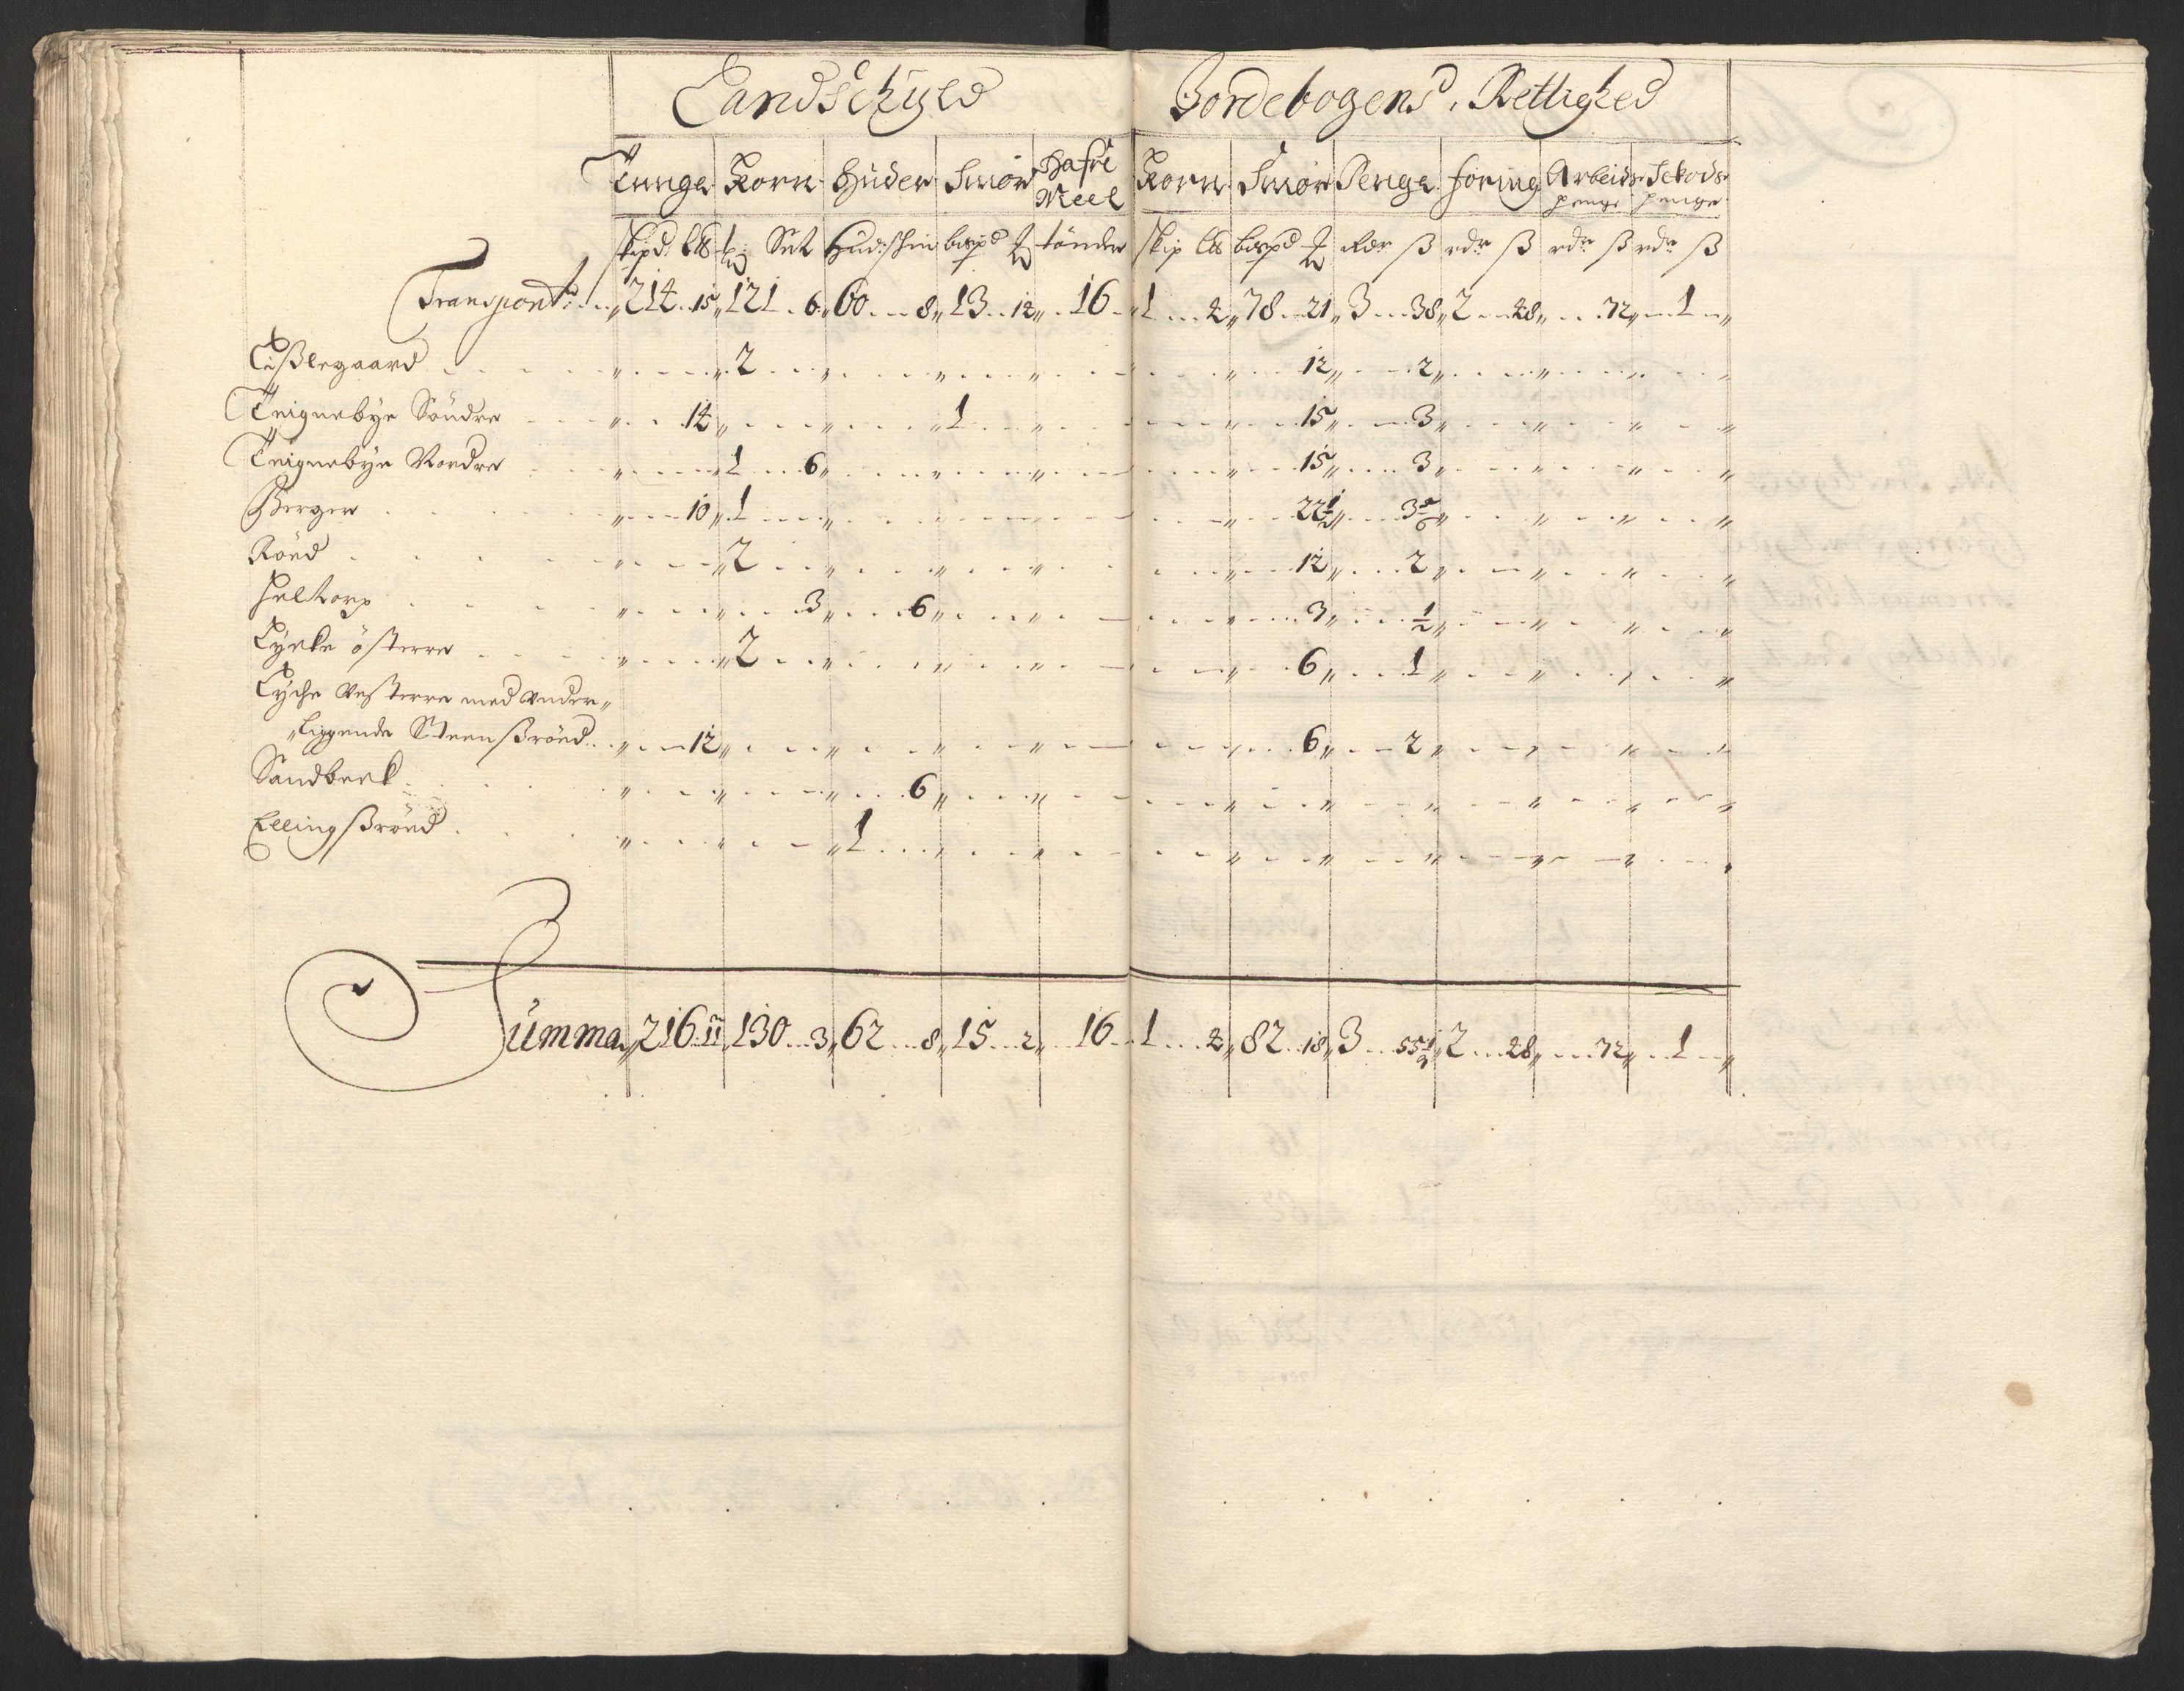 Landschyld Jordebogens Rettighed
Tunge Korn Huder Smør Hafre Meel Korn Smør Penge foring Arbeids penge Schovs penge
skipd: l℔ Set Hud: skin bispd ℔ tönder skip l℔ bispd ℔ rdr ß rdr ß rdr ß rdr ß
Transport 214 .. 15 121 . 6 60 .. 8 13 .. 12 16 1 ... 2 78 .. 21 3 ... 38 2 .. 28 72 1
Tißlegaard 2 12 2
Teignebye Söndre 14 1 15 3
Teignebye Nordre 1 .. 6 15 3
Berger 10 1 22½ 3
Röed 2 12 2
Heltorp 3 6 3 ½
Tycke österre 2 6 1
Tyche Westerre med under„
„liggende Steensröed 12 6 2
Sandbeck 6
Ellingßröed 1
Summa 216 .. 11 130 ... 3 62 .. 8 15 .. 2 16 1 ... 2 82 .. 18 3 .. 55½ 2 .. 28 72 1